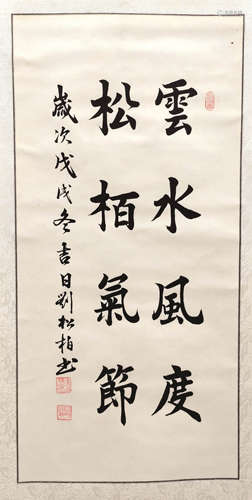 雲水風度
松栢氣節
歲次戊戌冬吉日劉松柏书